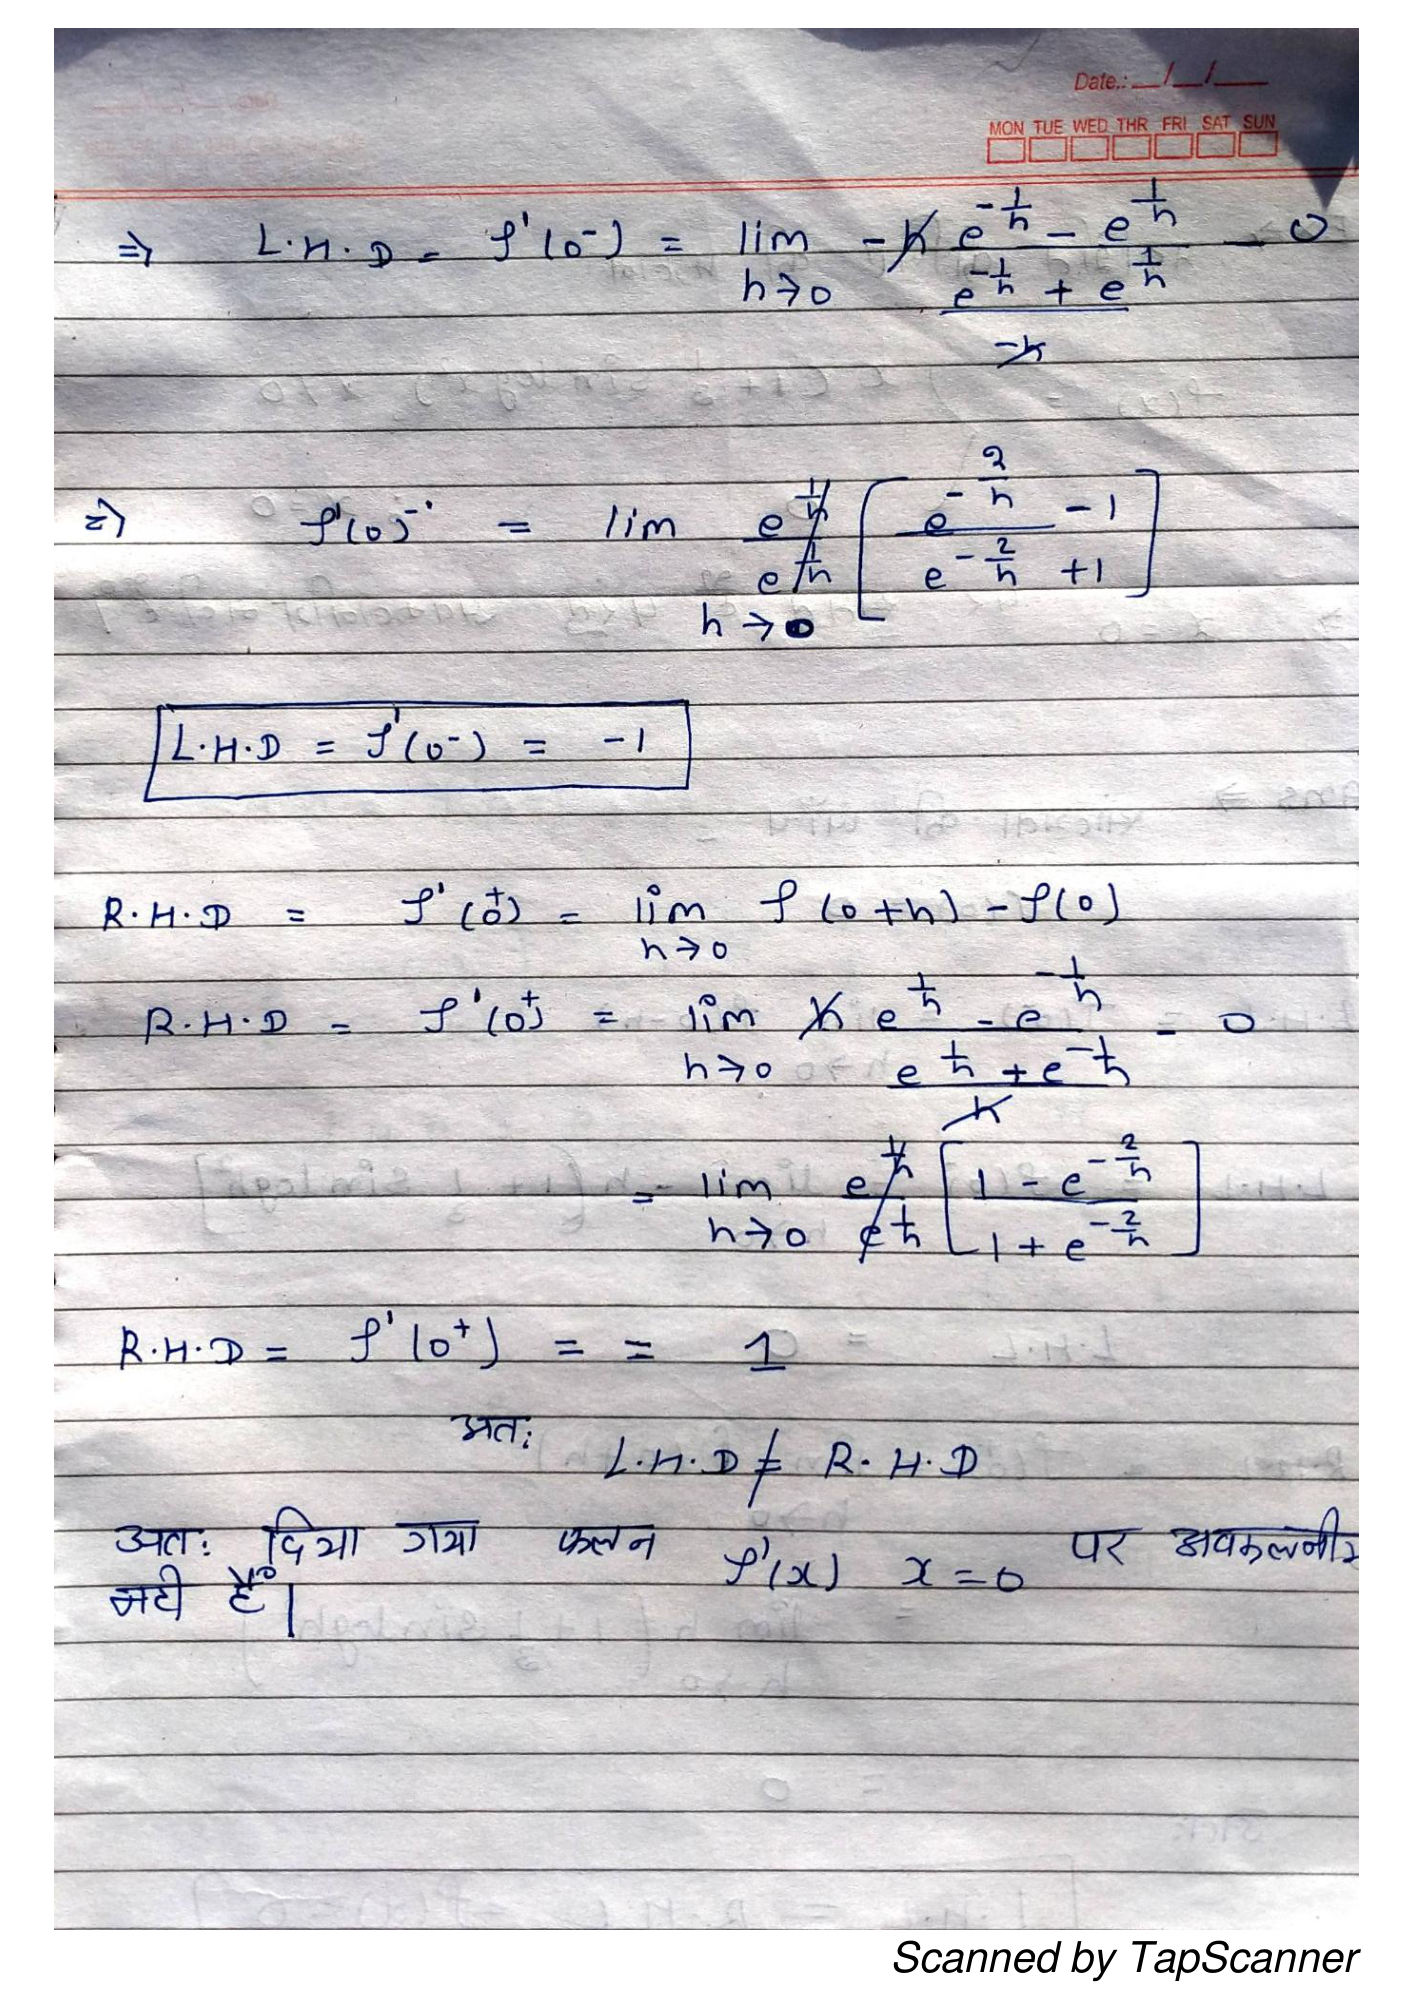 Date.: __/__/___
MON TUE WED THR FRI SAT SUN
⇒ L.H.D = f'(0⁻) = lim -h e^{-1/h} - e^{1/h} - 0
h→0 e^{-1/h} + e^{1/h}
-h
⇒ f'(0)⁻ = lim e^{1/h} [ e^{-2/h} - 1 ]
e^{1/h} [ e^{-2/h} + 1 ]
h→0
L.H.D = f'(0⁻) = -1
R.H.D = f'(0⁺) = lim f(0+h) - f(0)
h→0
R.H.D = f'(0⁺) = lim h e^{1/h} - e^{-1/h} = 0
h→0 e^{1/h} + e^{-1/h}
h
= lim e^{1/h} [ 1 - e^{-2/h} ]
h→0 e^{1/h} [ 1 + e^{-2/h} ]
R.H.D = f'(0⁺) = = 1
अतः
L.H.D ≠ R.H.D
अतः दिया गया फलन f'(x) x=0 पर अवकलनीय
नही है।
Scanned by TapScanner